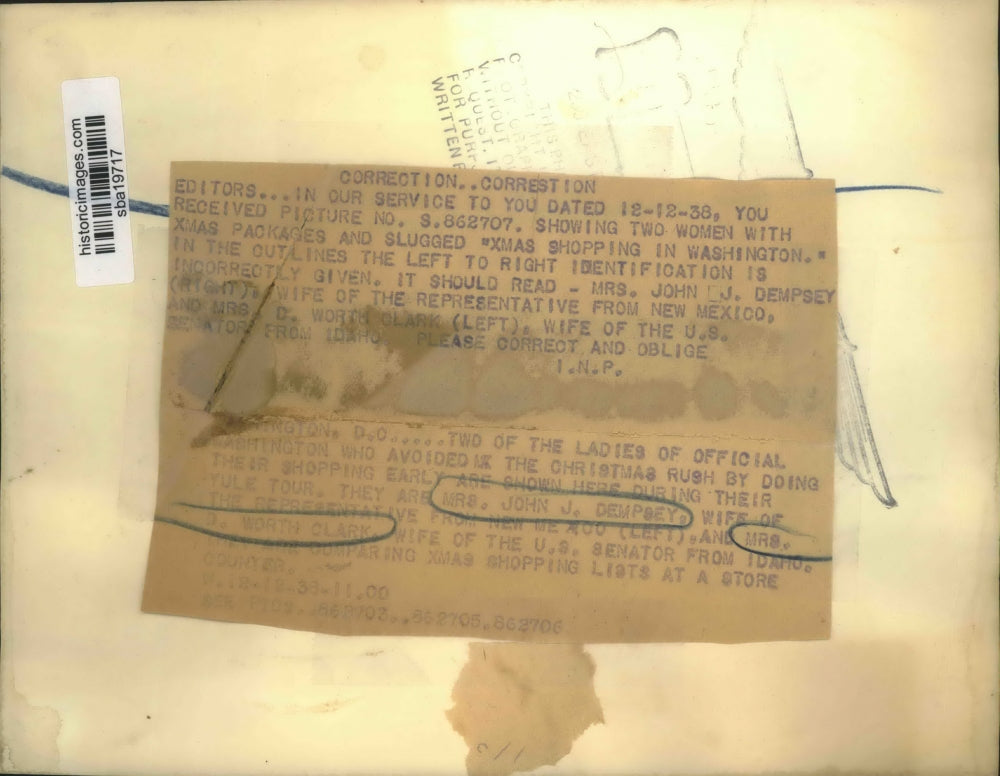 historicimages.com
sba19717
WITHOUT
FOR PURP
WRITTEN P
CORRECTION..CORRESTION
EDITORS...IN OUR SERVICE TO YOU DATED 12-12-38, YOU
RECEIVED PICTURE NO. S.862707. SHOWING TWO WOMEN WITH
XMAS PACKAGES AND SLUGGED "XMAS SHOPPING IN WASHINGTON."
IN THE CUTLINES THE LEFT TO RIGHT IDENTIFICATION IS
INCORRECTLY GIVEN. IT SHOULD READ - MRS. JOHN J. DEMPSEY
(RIGHT), WIFE OF THE REPRESENTATIVE FROM NEW MEXICO,
AND MRS. D. WORTH CLARK (LEFT), WIFE OF THE U.S.
SENATOR FROM IDAHO. PLEASE CORRECT AND OBLIGE
I.N.P.
INGTON, D.C.....TWO OF THE LADIES OF OFFICIAL
WASHINGTON WHO AVOIDED THE CHRISTMAS RUSH BY DOING
THEIR SHOPPING EARLY ARE SHOWN HERE DURING THEIR
YULE TOUR. THEY ARE MRS. JOHN J. DEMPSEY, WIFE OF
THE REPRESENTATIVE FROM NEW MEXICO (LEFT), AND MRS.
D. WORTH CLARK, WIFE OF THE U.S. SENATOR FROM IDAHO.
THEY ARE COMPARING XMAS SHOPPING LISTS AT A STORE
COUNTER.
W.12-12-38-11.00
SEE PICS..862703..862705.862706